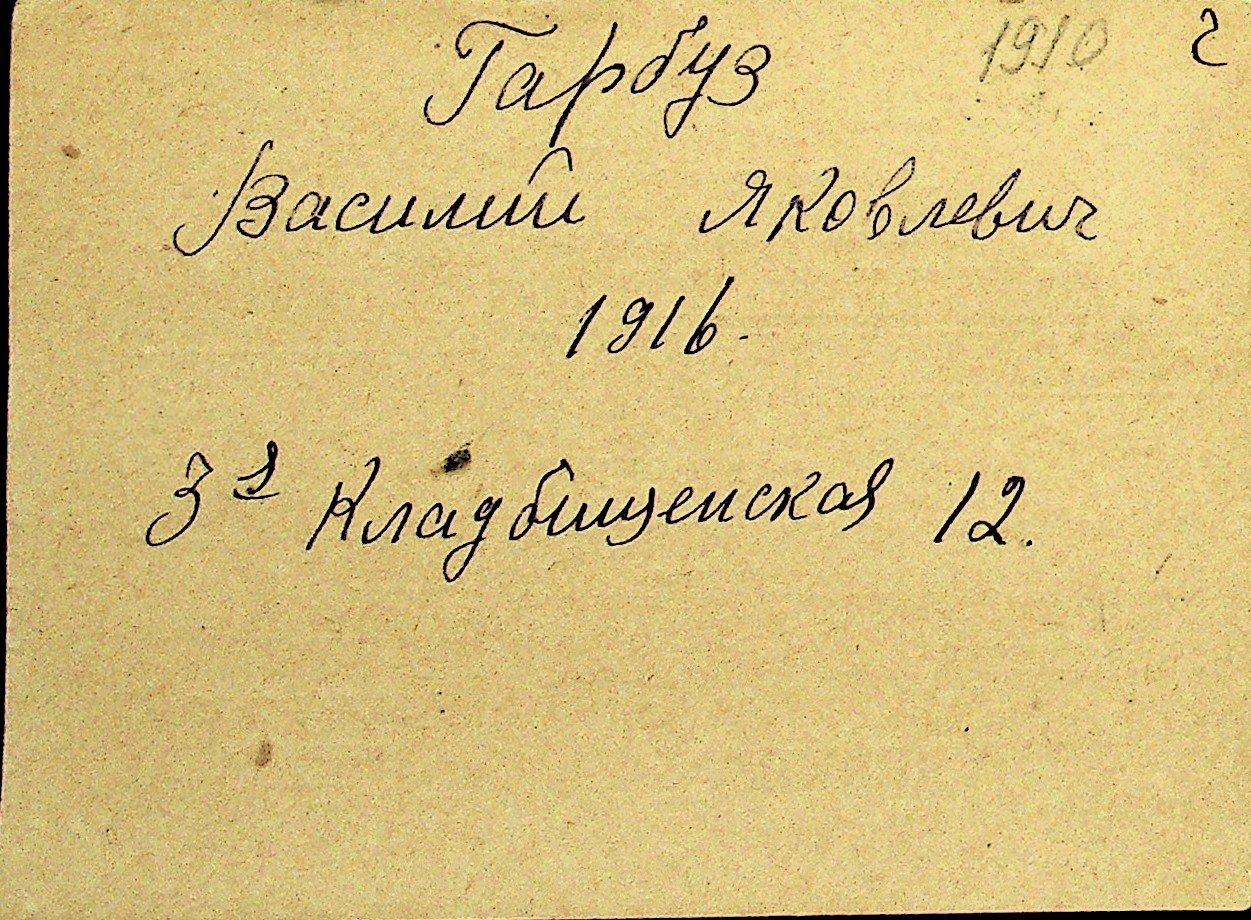 1910 г
Гарбуз
Василий Яковлевич
1916.
3я Кладбищенская 12.